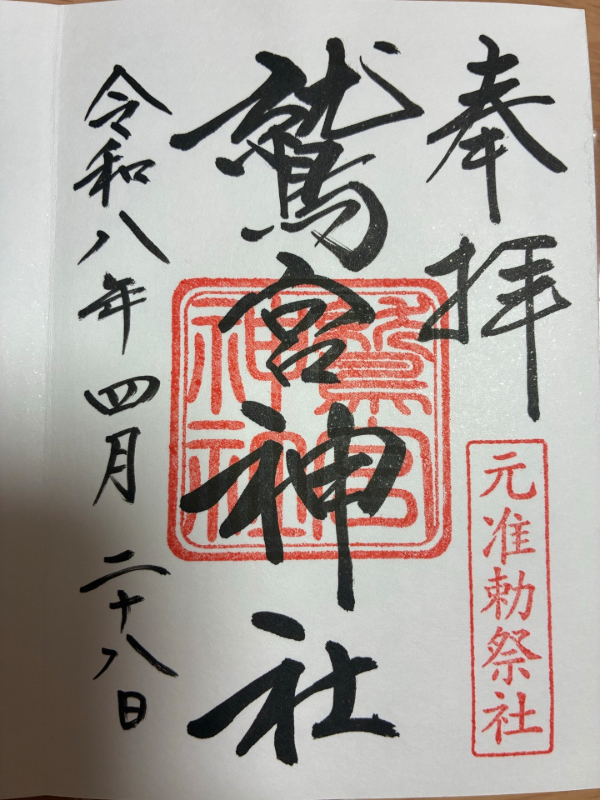 奉拝
元准勅祭社
鷲宮神社
鷲宮
神社
令和八年四月二十八日